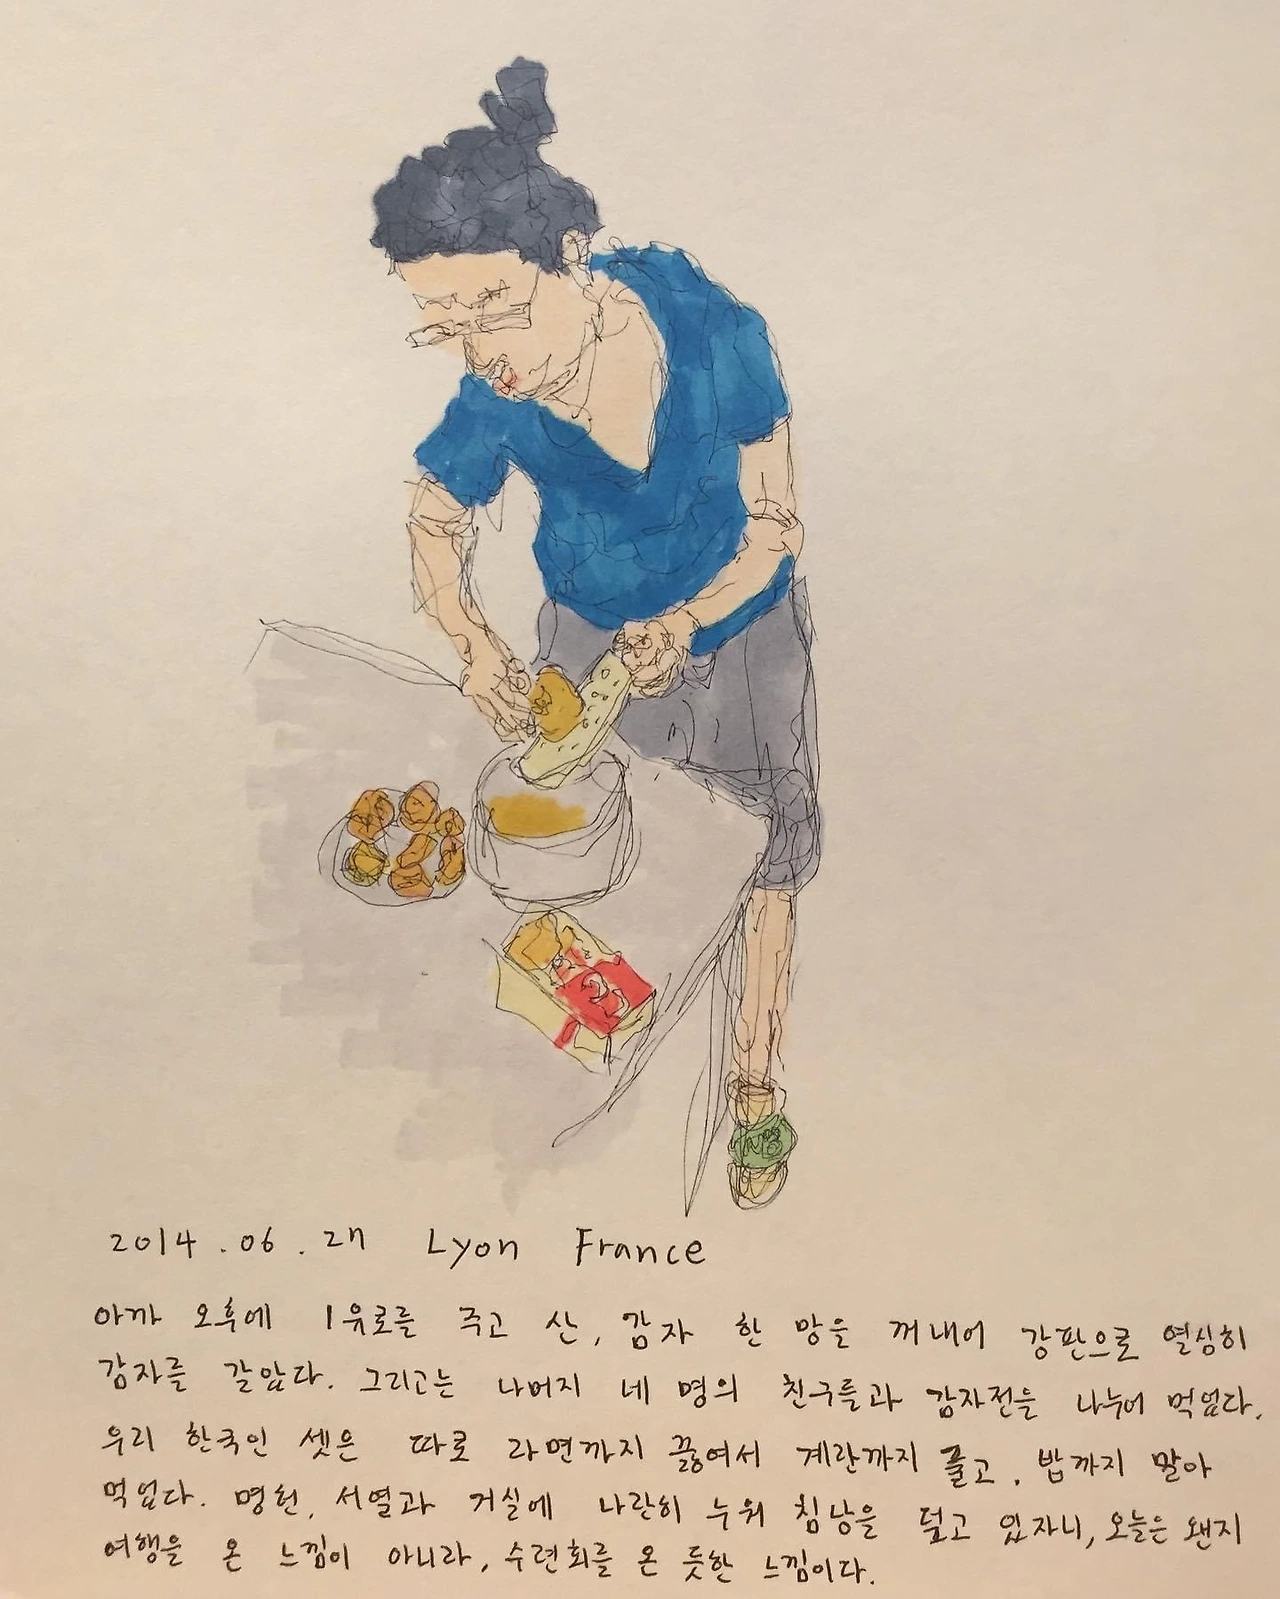 2014.06.27 Lyon France
아까 오후에 1유로를 주고 산, 감자 한 망을 꺼내어 강판으로 열심히
감자를 갈았다. 그리고는 나머지 네 명의 친구들과 감자전을 나누어 먹었다.
우리 한국인 셋은 따로 라면까지 끓여서 계란까지 풀고, 밥까지 말아
먹었다. 명헌, 서열과 거실에 나란히 누워 침낭을 덮고 있자니, 오늘은 왠지
여행을 온 느낌이 아니라, 수련회를 온 듯한 느낌이다.